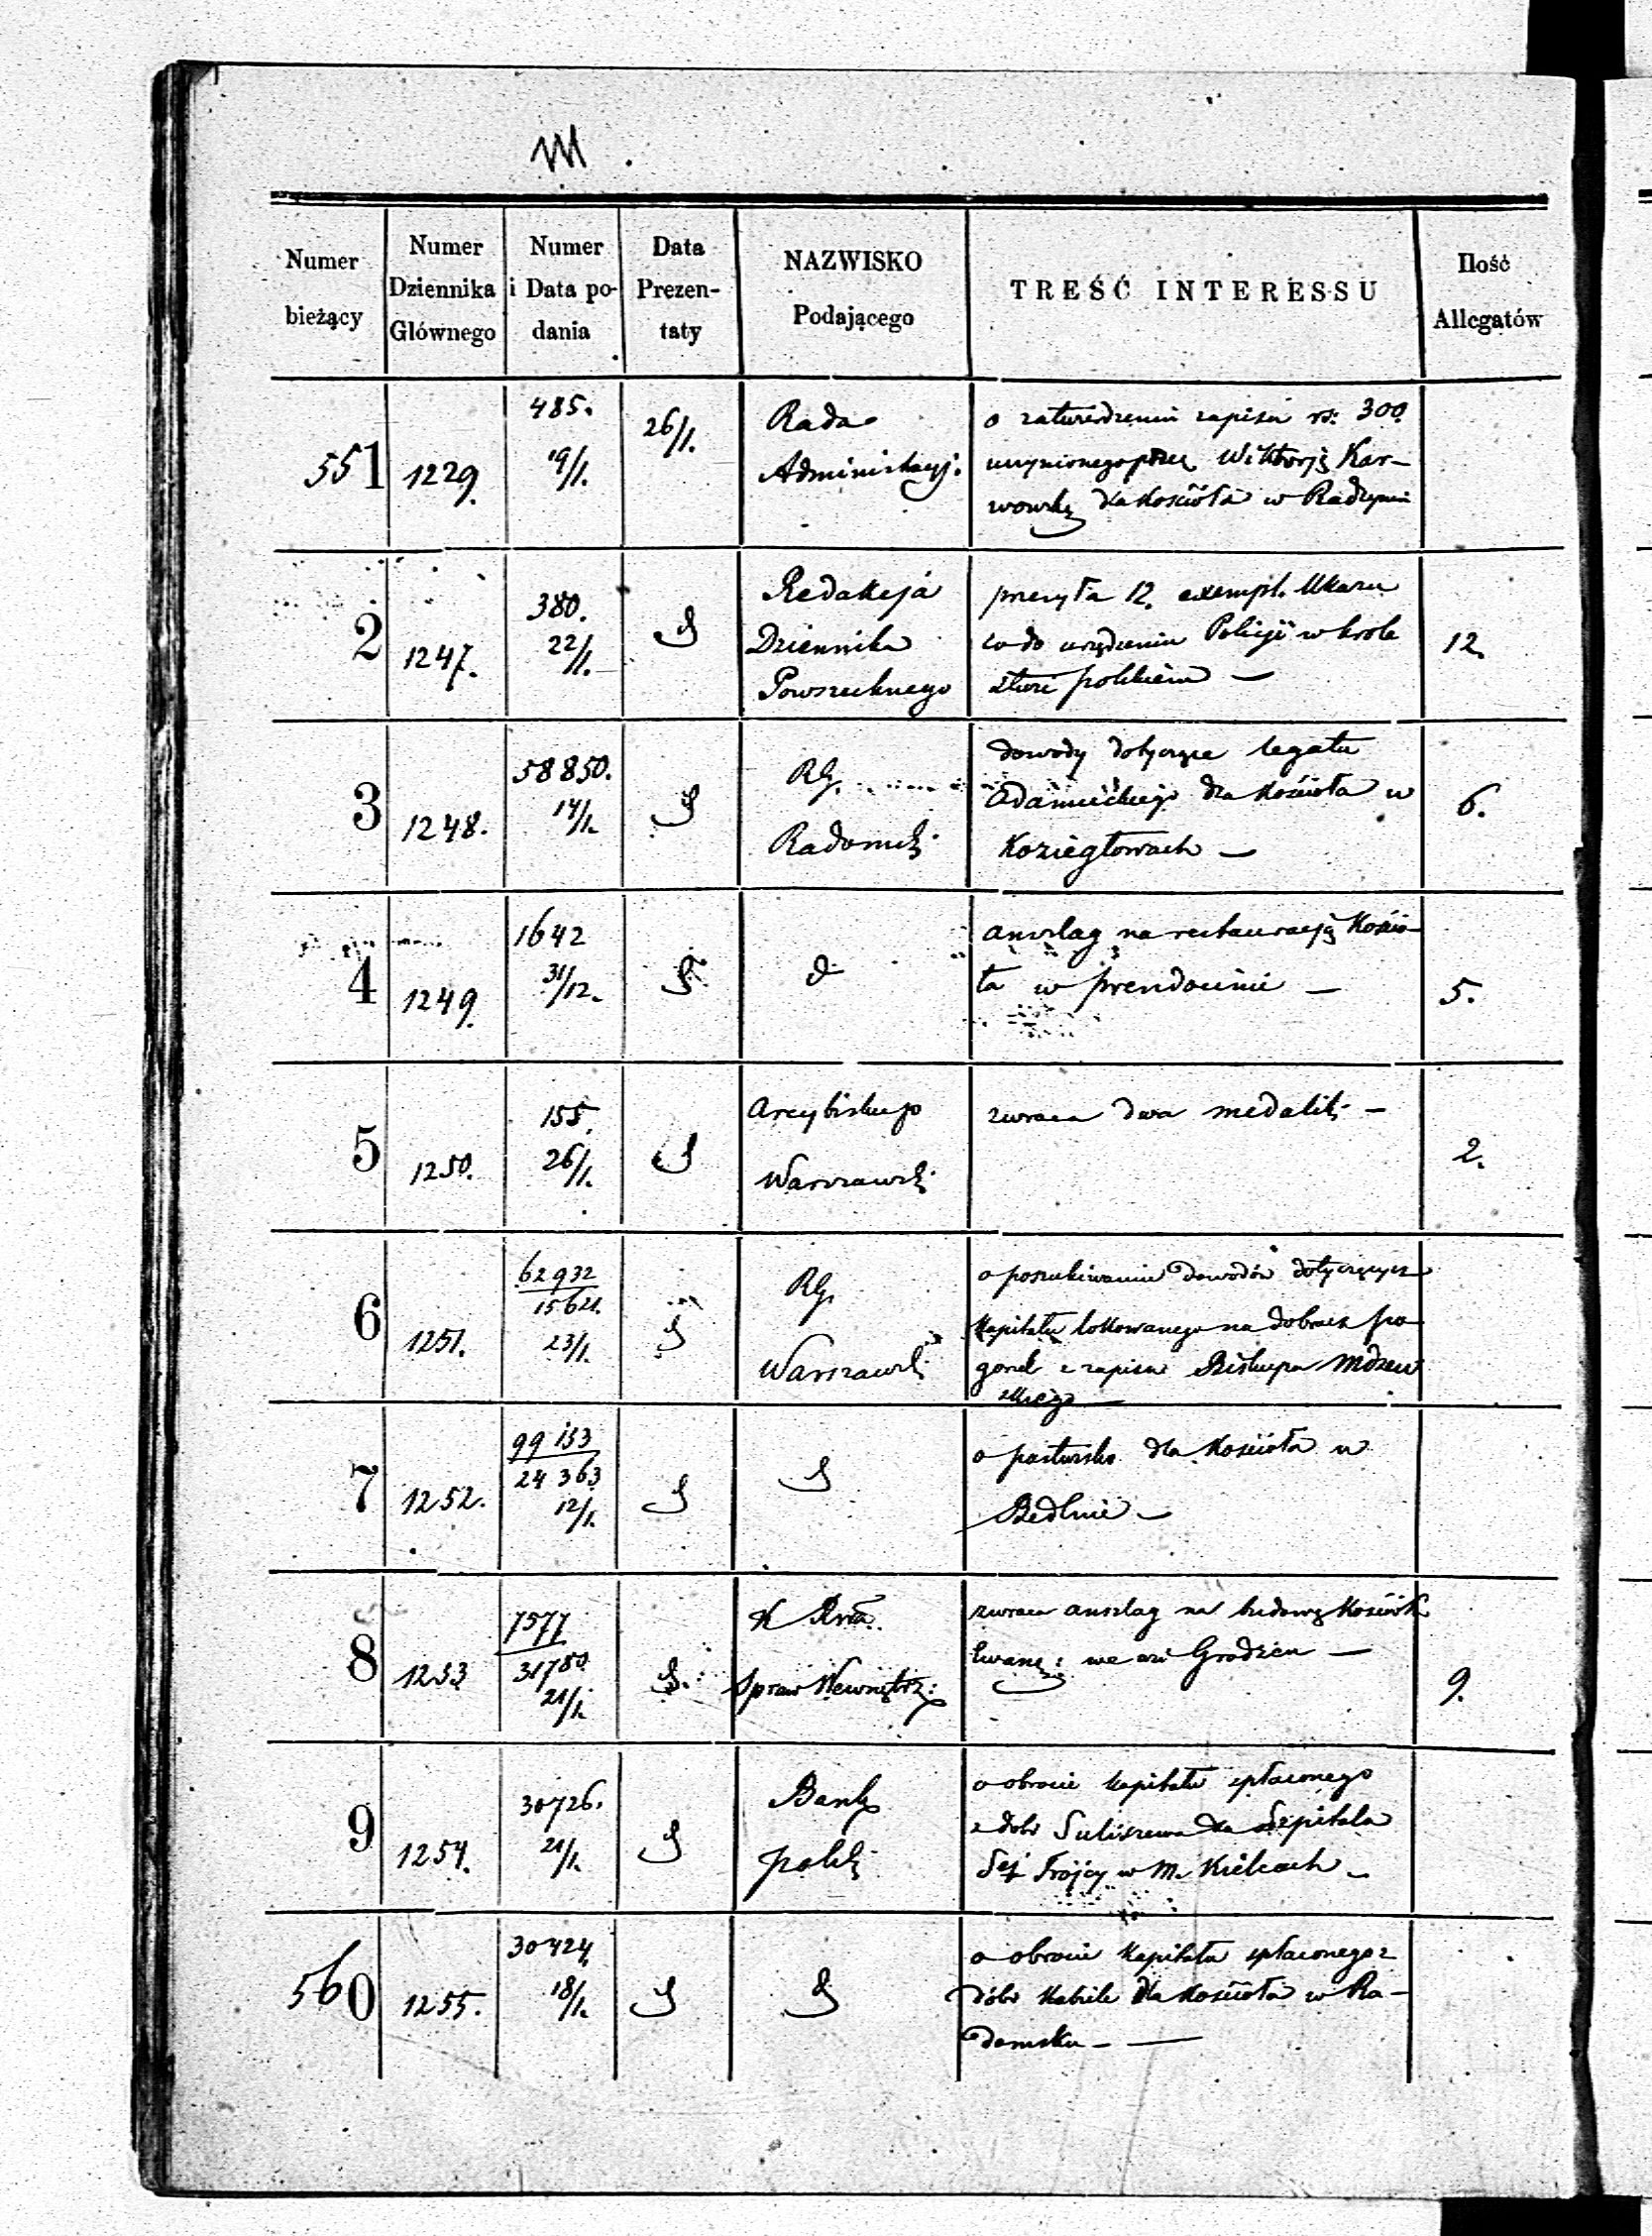 Numer bieżący
Numer Dziennika Głównego
Numer i Data podania
Data Prezentaty
NAZWISKO Podającego
TREŚĆ INTERESSU
Ilość Allegatów
551
1229.
485.
19/1.
26/1.
Rada
Administracyj:
o zatwierdzenie zapisu rs: 300
uczynionego przez Wiktorją Kar-
wowską dla Kościoła w Radzyminie
2
1247.
380.
22/1.
Redakcja
Dziennika
Powszechnego
przesyła 12. exempl. Ukazu
co do urządzenia Policyi w Króle
stwie polskiem —
12.
3
1248.
58850.
14/1.
RG.
Radomsk:
dowody dotyczące legatu
Adamieckiego dla Kościoła w
Koziegłowach —
6.
4
1249.
1642
31/12.
d-
anszlag na restauracją Kościo-
ła w
5.
5
1250.
155.
26/1.
Arcybiskup
Warszawsk:
zwraca dwa medalik: —
2.
6
1251.
62932
15621.
23/1.
RG.
Warszawsk:
o poszukiwanie dowodów dotyczących
Kapitału lokowanego na dobrach Po
z zapisu Biskupa
skiego —
7
1252.
99133
24363
12/1.
o pastwisko dla Kościoła w
Bedlnie —
8
1253
7577
31780
21/1.
K Rwa
Spraw Wewnętrz:
zwraca anszlag na budowę Kościoła
we wsi Grodzicu —
9.
9
1254.
30726.
21/1.
Bank
polsk:
o obrocie Kapitału spłaconego
z dóbr Suliszewa dla Szpitala
Sej Trójcy w M. Kielcach —
560
1255.
30424
18/1.
o obrocie Kapitału spłaconego z
dóbr Kobiele dla Kościoła w Ra-
domsku — —